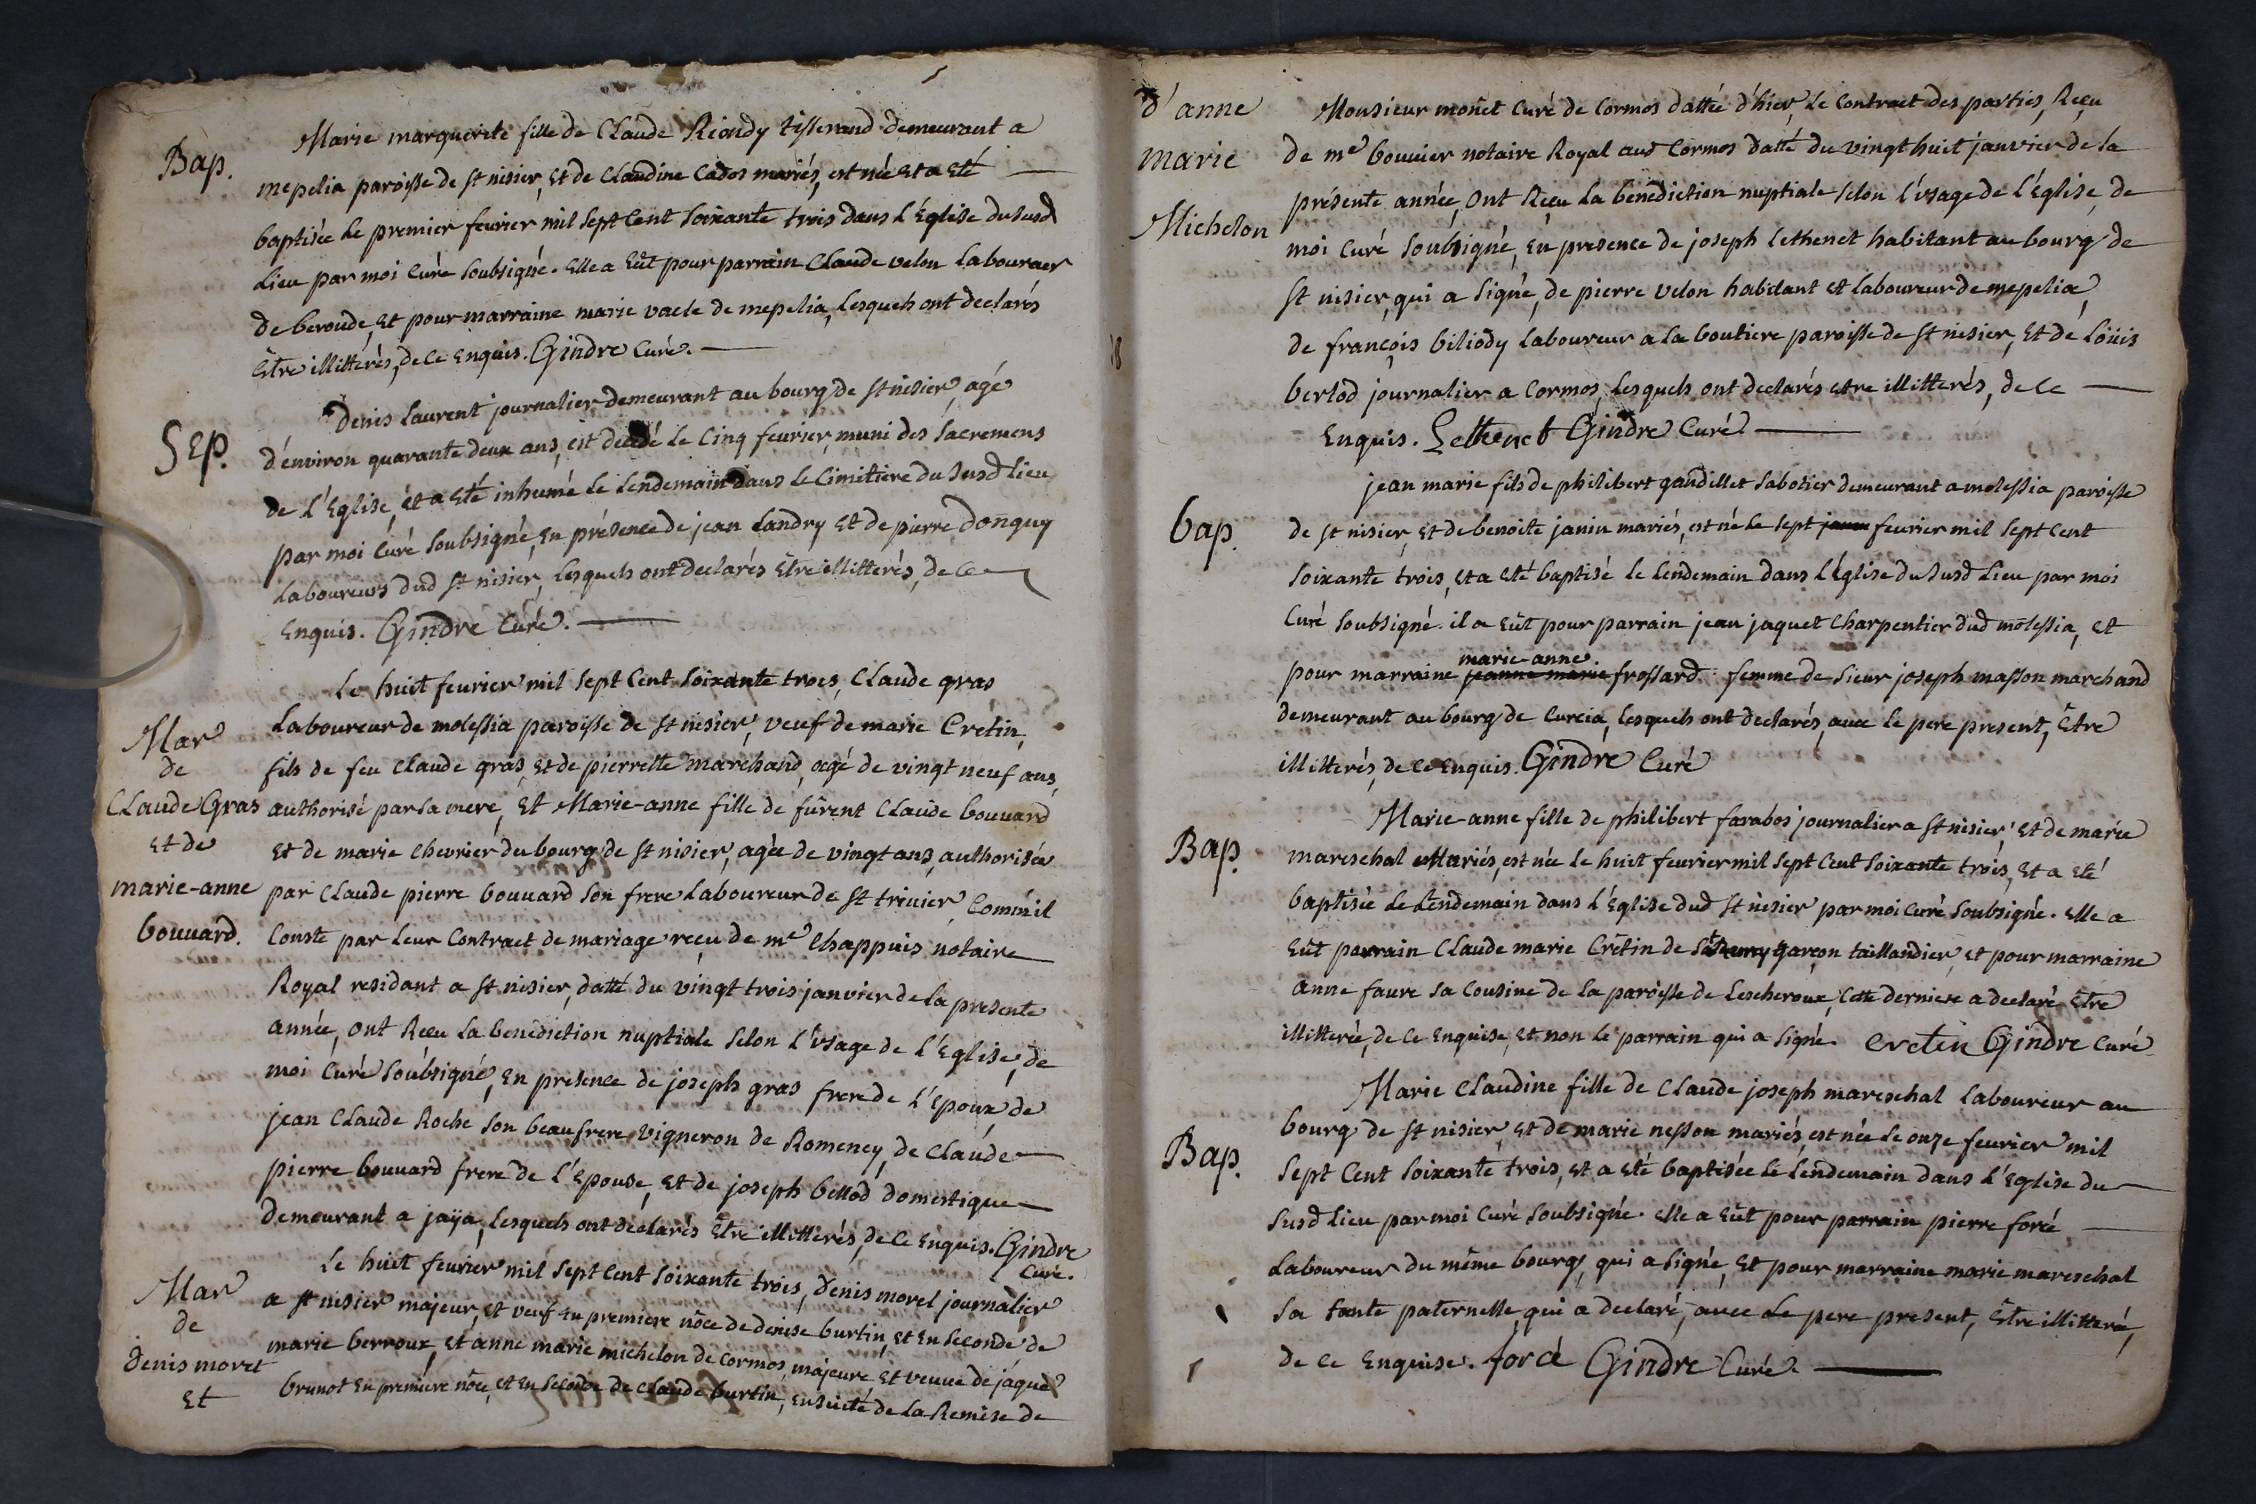 Bap.
Marie marguerite fille de Claude Riondy tisserand demeurant a
mepelia paroisse de st nisier, et de Claudine Cados mariés, est née et a eté
baptisée le premier fevrier mil sept cent soixante trois dans l'Eglise du susd
lieu par moi curé soubsigné. elle a eüt pour parrain Claude velon laboureur
de beroude, et pour marraine marie vacle de mepelia, lesquels ont declarés
être illitterés, de ce enquis. Gindre curé.
Sep.
Denis laurent journalier demeurant au bourg de st nisier, agé
d'environ quarante deux ans, est decedé le cinq fevrier, muni des sacremens
de l'Eglise, et a eté inhumé le lendemain dans le cimitiere du susd lieu
par moi curé soubsigné, en présence de jean landry et de pierre donguy
laboureurs dud st nisier, lesquels ont declarés être illitterés, de ce
enquis. Gindre curé.
Mar
de
Claude Gras
et de
marie-anne
bouvard.
Le huit fevrier mil sept cent soixante trois, Claude gras
laboureur de molessia paroisse de st nisier, veuf de marie Cretin,
fils de feu claude gras, et de pierrette marchand, agé de vingt neuf ans,
authorisé par sa mere, et Marie-anne fille de fûrent Claude bouvard
et de marie chevrier du bourg de st nisier, agée de vingt ans, authorisée
par Claude pierre bouvard son frere laboureur de st trivier, comm'il
conste par leur contract de mariage reçu de me Chappuis notaire
Royal residant a st nisier, datté du vingt trois janvier de la presente
année, ont Reçu la benediction nuptiale selon l'vsage de l'Eglise, de
moi curé soubsigné, en presence de joseph gras frere de l'epoux, de
jean Claude Roche son beaufrere vigneron de Romeney, de Claude
pierre bouvard frere de l'epouse, et de joseph bellod domestique
demeurant a jaÿa, lesquels ont declarés être illitterés, de ce enquis. Gindre
curé.
Mar
de
Denis morel
et
Le huit fevrier mil sept cent soixante trois, Denis morel journalier
a st nisier majeur, et veuf en premiere nôce de denise burtin, et en seconde de
marie berroux, et anne marie michelon de cormos, majeure et veuve de jaque
brunot en premiere nôce, et en seconde de claude burtin, ensuite de la Remise de
d'anne
marie
Michelon
Monsieur monet curé de Cormos dattée d'hier, le contract des parties, Reçu
de me bouvier notaire Royal aud Cormos datté du vingt huit janvier de la
présente année, ont Reçu la benediction nuptiale selon l'vsage de l'Eglise, de
moi curé soubsigné, en presence de joseph lethenet habitant au bourg de
st nisier, qui a signé, de pierre velon habitant et laboureur de mepelia,
de françois biliody laboureur a la boutiere paroisse de st nisier, et de loüis
berlod journalier a Cormos, lesquels ont declarés etre illitterés, de ce
enquis. Lethenet Gindre curé.
bap.
jean marie fils de philibert gaudillet sabotier demeurant a molessia paroisse
de st nisier, et de benoite janin mariés, est né le sept fevrier mil sept cent
soixante trois, et a eté baptisé le lendemain dans l'Eglise du susd lieu par moi
curé soubsigné. il a eüt pour parrain jean jaquet charpentier dud molessia, et
marie-anne.
pour marraine jeanne marie frossard femme de sieur joseph masson marchand
demeurant au bourg de Curcia, lesquels ont declarés, avec le pere present, être
illitterés, de ce enquis. Gindre curé
Bap.
Marie-anne fille de philibert farabos journalier a st nisier, et de marie
mareschal Mariés, est née le huit fevrier mil sept cent soixante trois, et a eté
baptisée le lendemain dans l'Eglise dud st nisier par moi curé soubsigné. elle a
eüt parrain Claude marie Cretin de garçon taillandier, et pour marraine
anne faure sa cousine de la paroisse de Lescheroux, cette derniere a declaré être
illitterée, de ce enquise, et non le parrain qui a signé. cretin Gindre curé
Bap.
Marie Claudine fille de Claude joseph mareschal laboureur au
bourg de st nisier, et de marie nesson mariés, est née le onze fevrier mil
sept cent soixante trois, et a eté baptisée le lendemain dans l'Eglise du
susd lieu par moi curé soubsigné. elle a eüt pour parrain pierre foré
laboureur du même bourg, qui a signé, et pour marraine marie mareschal
sa tante paternelle, qui a declaré, avec le pere present, être illitteré,
de ce enquise. foré Gindre curé.